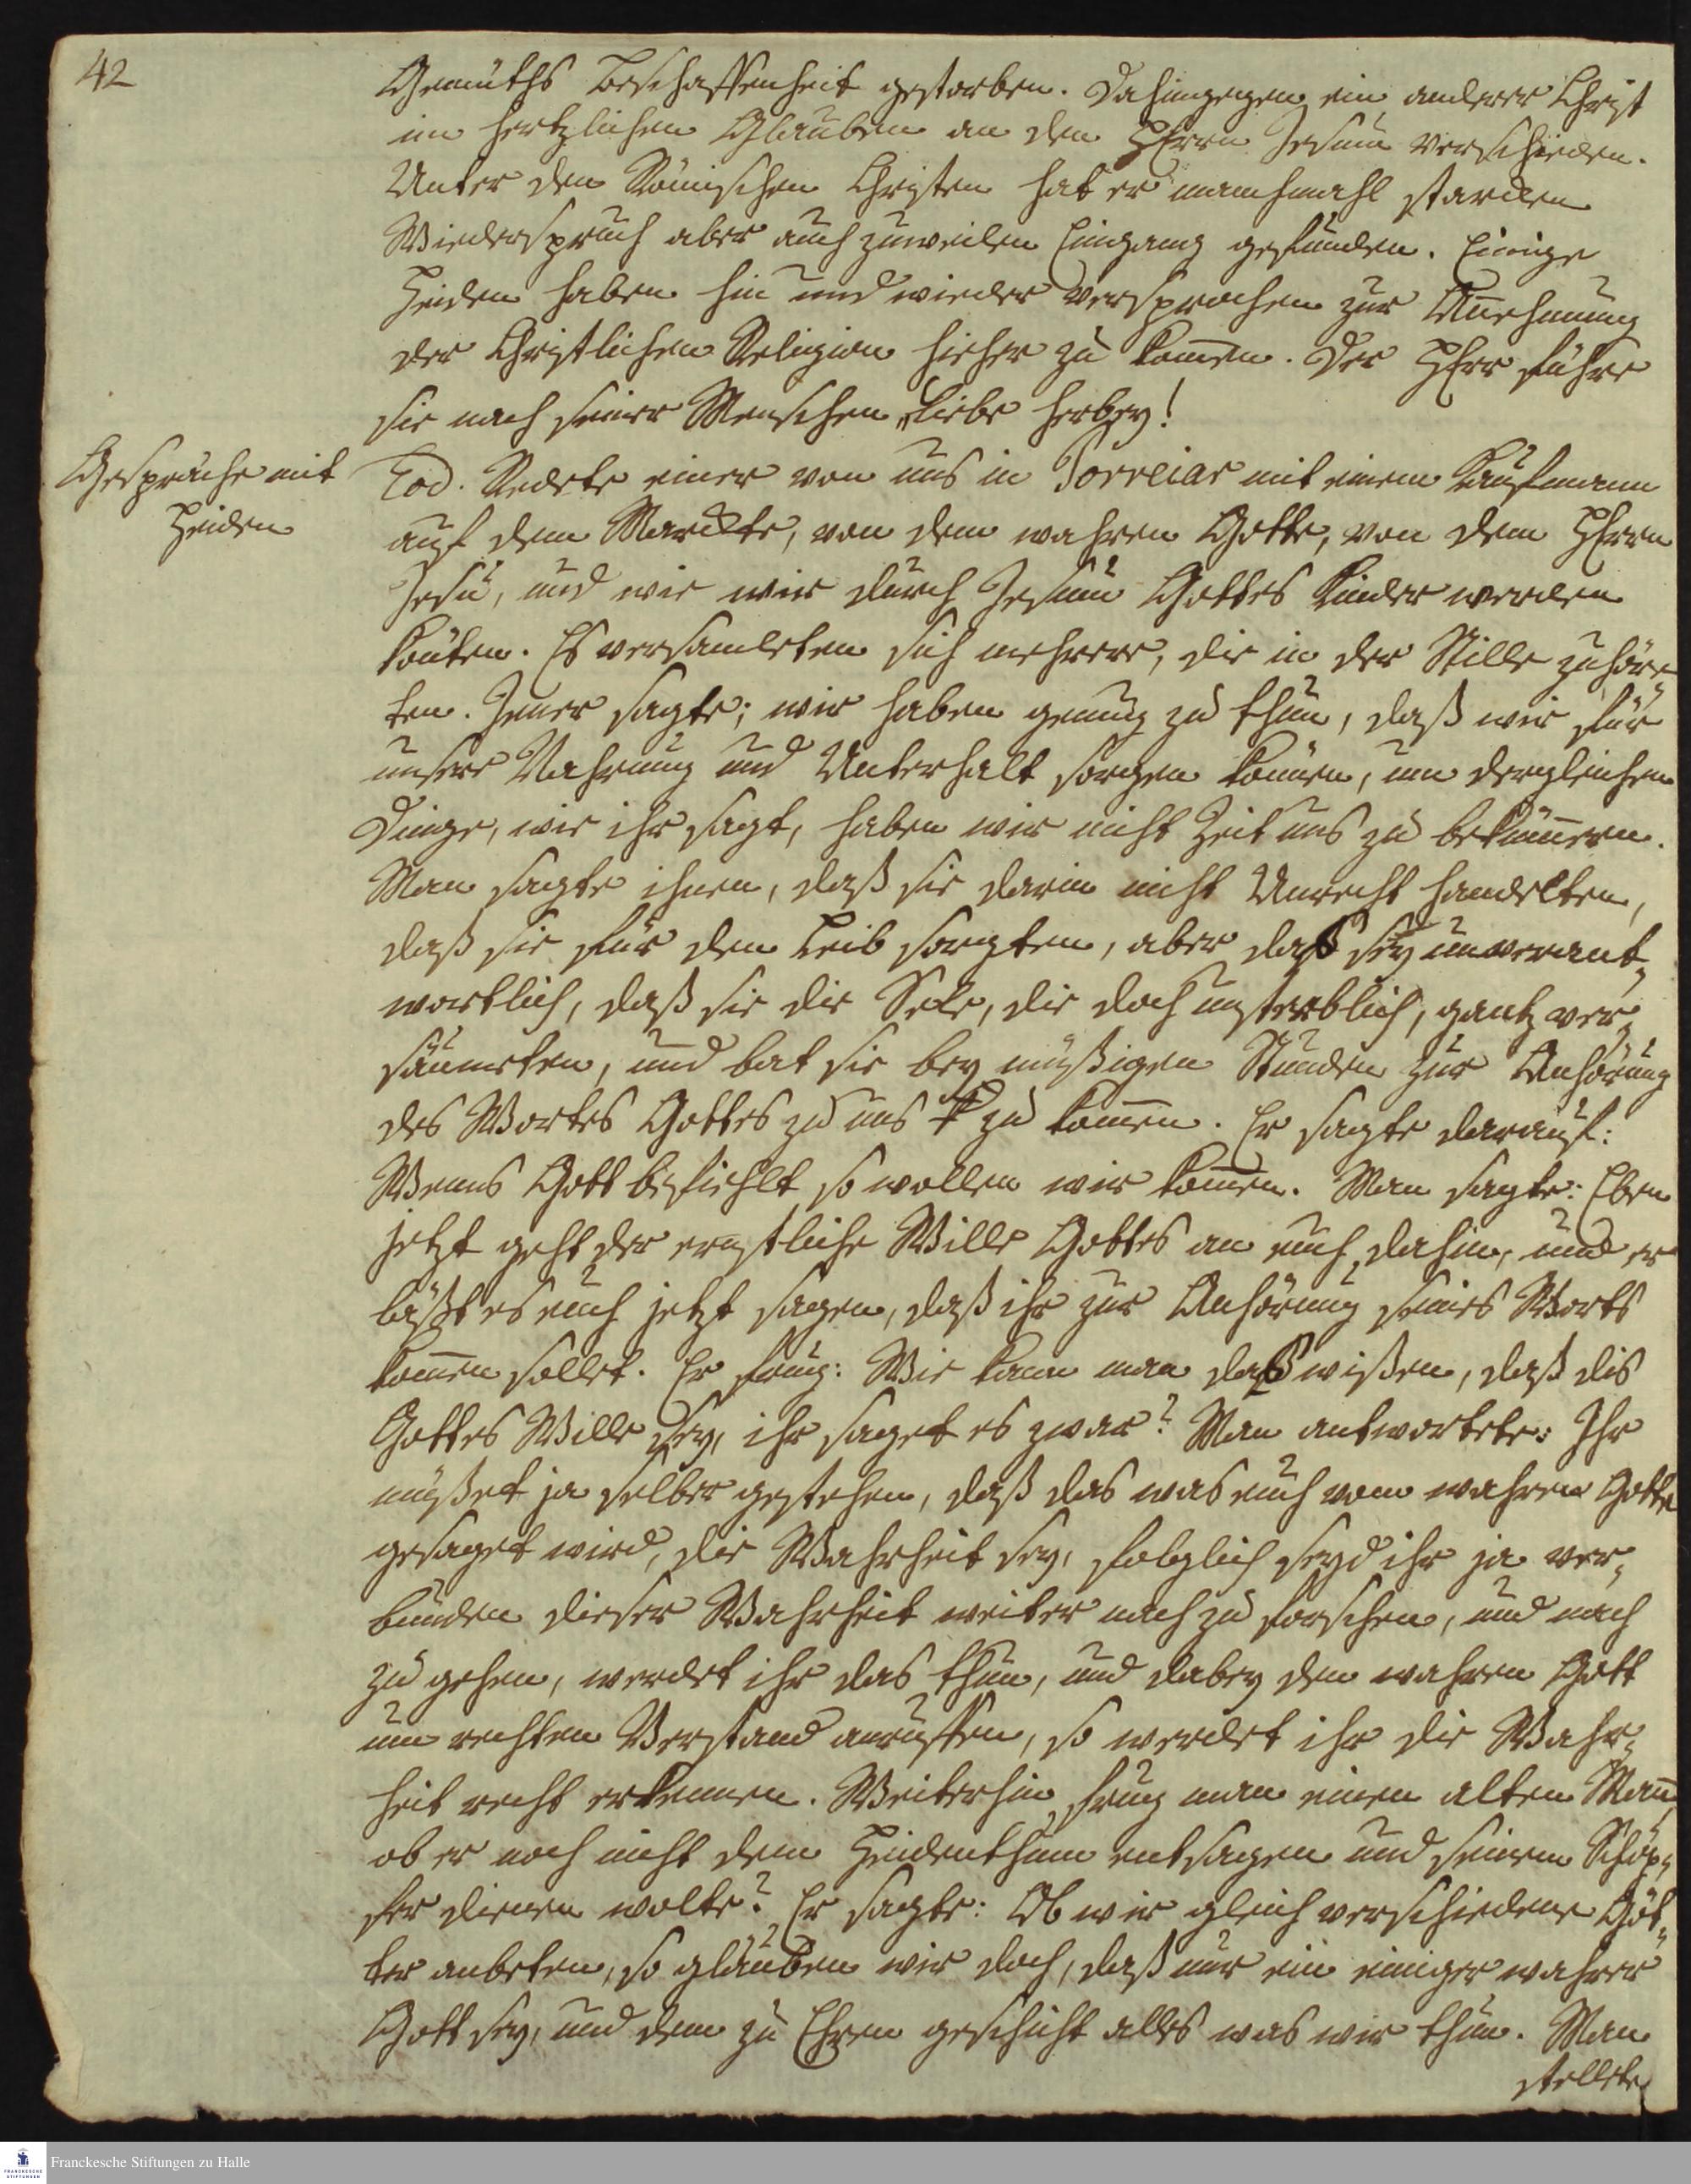 42
Gemüths Beschaffenheit gestorben. Dahingegen ein anderer Christ
im hertzlichen Glauben an den HErrn Jesum verschieden.
Unter den Römischen Christen hat er manchmahl starcken
Wiederspruch aber auch zuweilen Eingang gefunden. Einige
Heiden haben hin und wieder versprochen zur Annehmung
der Christlichen Religion hieher zu kom̄en. Der HErr führe
sie nach seiner Menschen Liebe herbey!
Gespräche mit
Heiden
Eod. Redete einer von uns in Porreiar mit einem Kaufmann
auf dem Marckte, von dem wahren Gotte, von dem HErrn
Jesu, und wie wir durch Jesum Gottes Kinder werden
kön̄ten. Es versamleten sich mehrere, die in der Stille zuhöre-
ten. Jener sagte; wir haben genug zu thun, daß wir für
unsere Nahrung und Unterhalt sorgen können, um dergleichen
Dinge, wie ihr sagt, haben wir nicht Zeit uns zu beküm̄ern.
Man sagte ihnen, daß sie darin nicht Unrecht handelten,
daß sie für den Leib sorgten, aber das sey unverant-
wortlich, daß sie die Sele, die doch unsterblich, gantz ver-
säumeten, und bat sie bey müßigen Stunden zur Anhörung
des Wortes Gottes zu uns zu kom̄en. Er sagte darauf:
Wenns Gott befiehlt so wollen wir kom̄en. Man sagte: Eben
jetzt geht der ernstliche Wille Gottes an euch dahin, und er
läßt es euch jetzt sagen, daß ihr zur Anhörung seines Worts
kom̄en sollet. Er frug: Wie kann man das wißen, daß dis
Gottes Wille sey, ihr saget es zwar? Man antwortete: Ihr
müßet ja selber gestehen, daß das was euch vom wahren Gotte
gesaget wird, die Wahrheit sey, folglich seyd ihr ja ver-
bunden dieser Wahrheit weiter nach zu forschen, und nach
zu gehen, werdet ihr das thun, und dabey den wahren Gott
um rechten Verstand anruffen, so werdet ihr die Wahr-
heit recht erkennen. Weiterhin frug man einen alten Man̄
ob er noch nicht dem Heidenthum entsagen und seinem Schöp-
fer dienen wolte? Er sagte: Ob wir gleich verschiedene Göt-
ter anbeten, so gläuben wir doch, daß nur ein einiger wahrer
Gott sey, und dem zu Ehren geschicht alles was wir thun. Man
stellete
Franckesche Stiftungen zu Halle
FRANCKESCHE
STIFTUNGEN